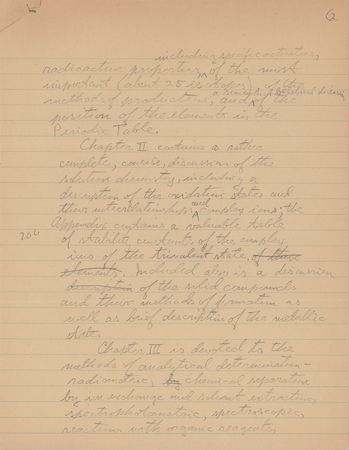 6
including specific activities,
radioactive properties, of the most
important (about 25 isotopes), of the
a simple, historical discussion
methods of production, and of the
position of the elements in the
Periodic Table.
Chapter II contains a rather
complete, concise, discussion of the
solution chemistry, including a
description of the oxidation states and
their interrelationships and complex ions; the
Appendix contains a valuable table
204
of stability constants of the complex
ions of the trivalent state, of these
elements. Included also is a discussion
description of the solid compounds
and their methods of formation as
well as brief description of the metallic
state.
Chapter III is devoted to the
methods of analytical determination -
radiometric, by chemical separation
by ion exchange and solvent extraction,
spectrophotometric, spectroscopic,
reactions with organic reagents,